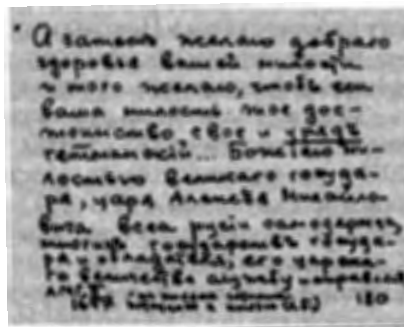 А затемъ желаю добраго
здоровье вашей милости
и того желаю, чтобъ еси
ваша милость твое дос-
тоинство свое и урядъ
гетманский... Божиею ми-
лостью великого госуда-
ря, царя Алексея Михайло
вича всеа русии самодержца
многихъ государствъ госуда-
ря и облаадателя, его царско-
го величества службу
180